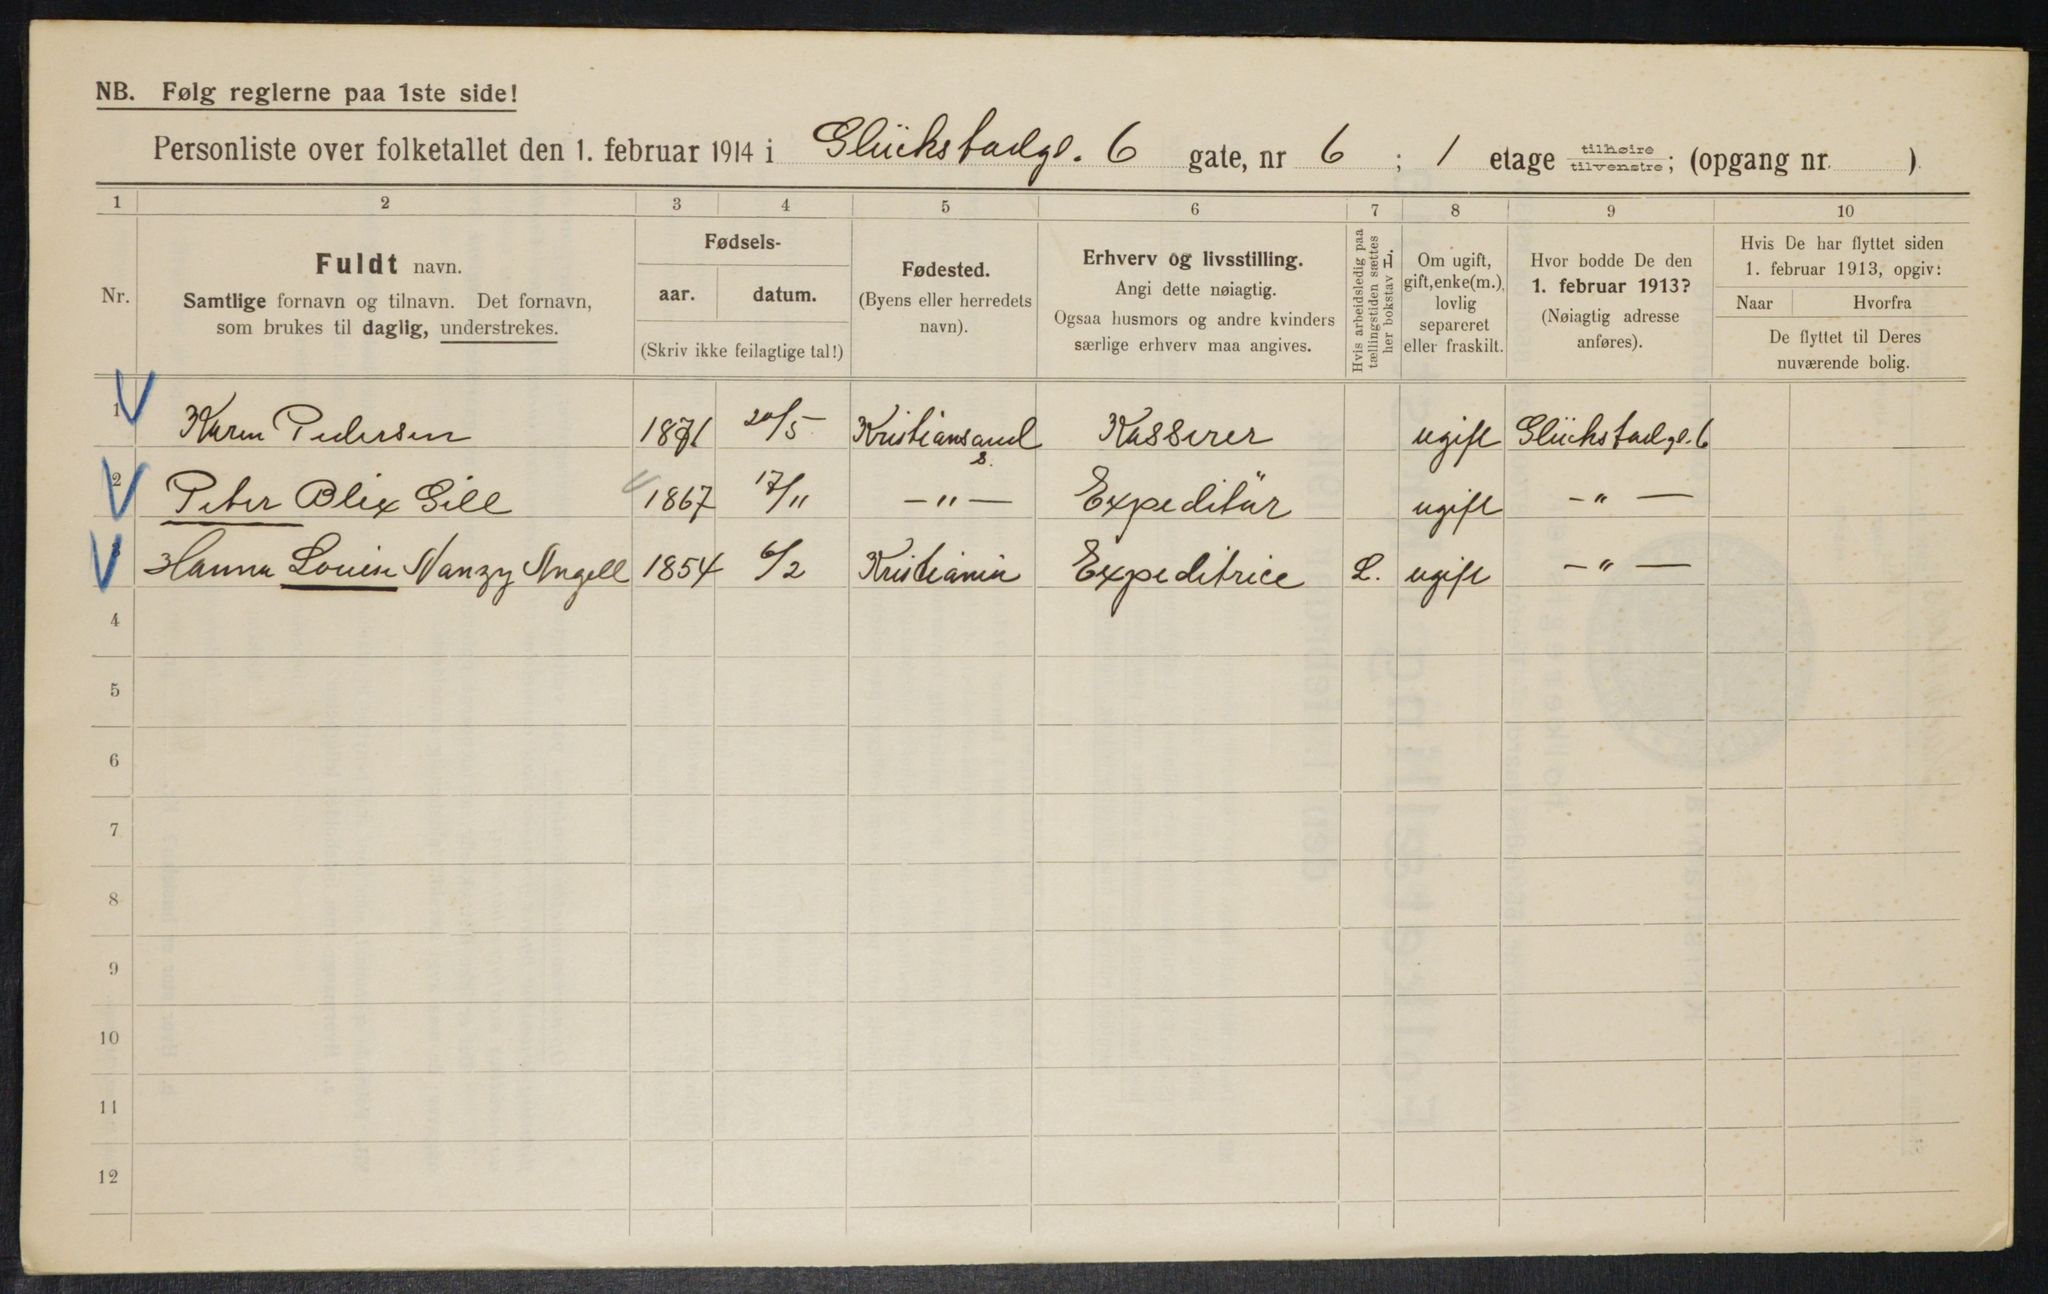 NB. Følg reglerne paa 1ste side!
Personliste over folketallet den 1. februar 1914 i Glückstadgt. 6 gate, nr 6 ; 1 etage tilhøire tilvenstre; (opgang nr. )
1 2 3 4 5 6 7 8 9 10
Nr.
Fuldt navn.
Samtlige fornavn og tilnavn. Det fornavn,
som brukes til daglig, understrekes.
Fødsels-
aar. datum.
(Skriv ikke feilagtige tal!)
Fødested.
(Byens eller herredets
navn).
Erhverv og livsstilling.
Angi dette nøiagtig.
Ogsaa husmors og andre kvinders
særlige erhverv maa angives.
Hvis arbeidsledig paa
tællingstiden sættes
her bokstav L.
Om ugift,
gift, enke(m.),
lovlig
separeret
eller fraskilt.
Hvor bodde De den
1. februar 1913?
(Nøiagtig adresse
anføres).
Hvis De har flyttet siden
1. februar 1913, opgiv:
Naar Hvorfra
De flyttet til Deres
nuværende bolig.
1 Karen Pedersen 1871 20/5 Kristiansand S. Kasserer ugift Glückstadgt. 6
2 Peter Blix Gill 1867 17/11 — " — Expeditür ugift — " —
3 Hanna Louise Nanzy Angell 1854 6/2 Kristiania Expeditrice L. ugift — " —
4
5
6
7
8
9
10
11
12